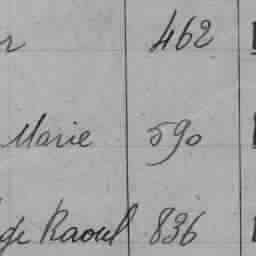 r 462
Marie 590
ge Raoul 836